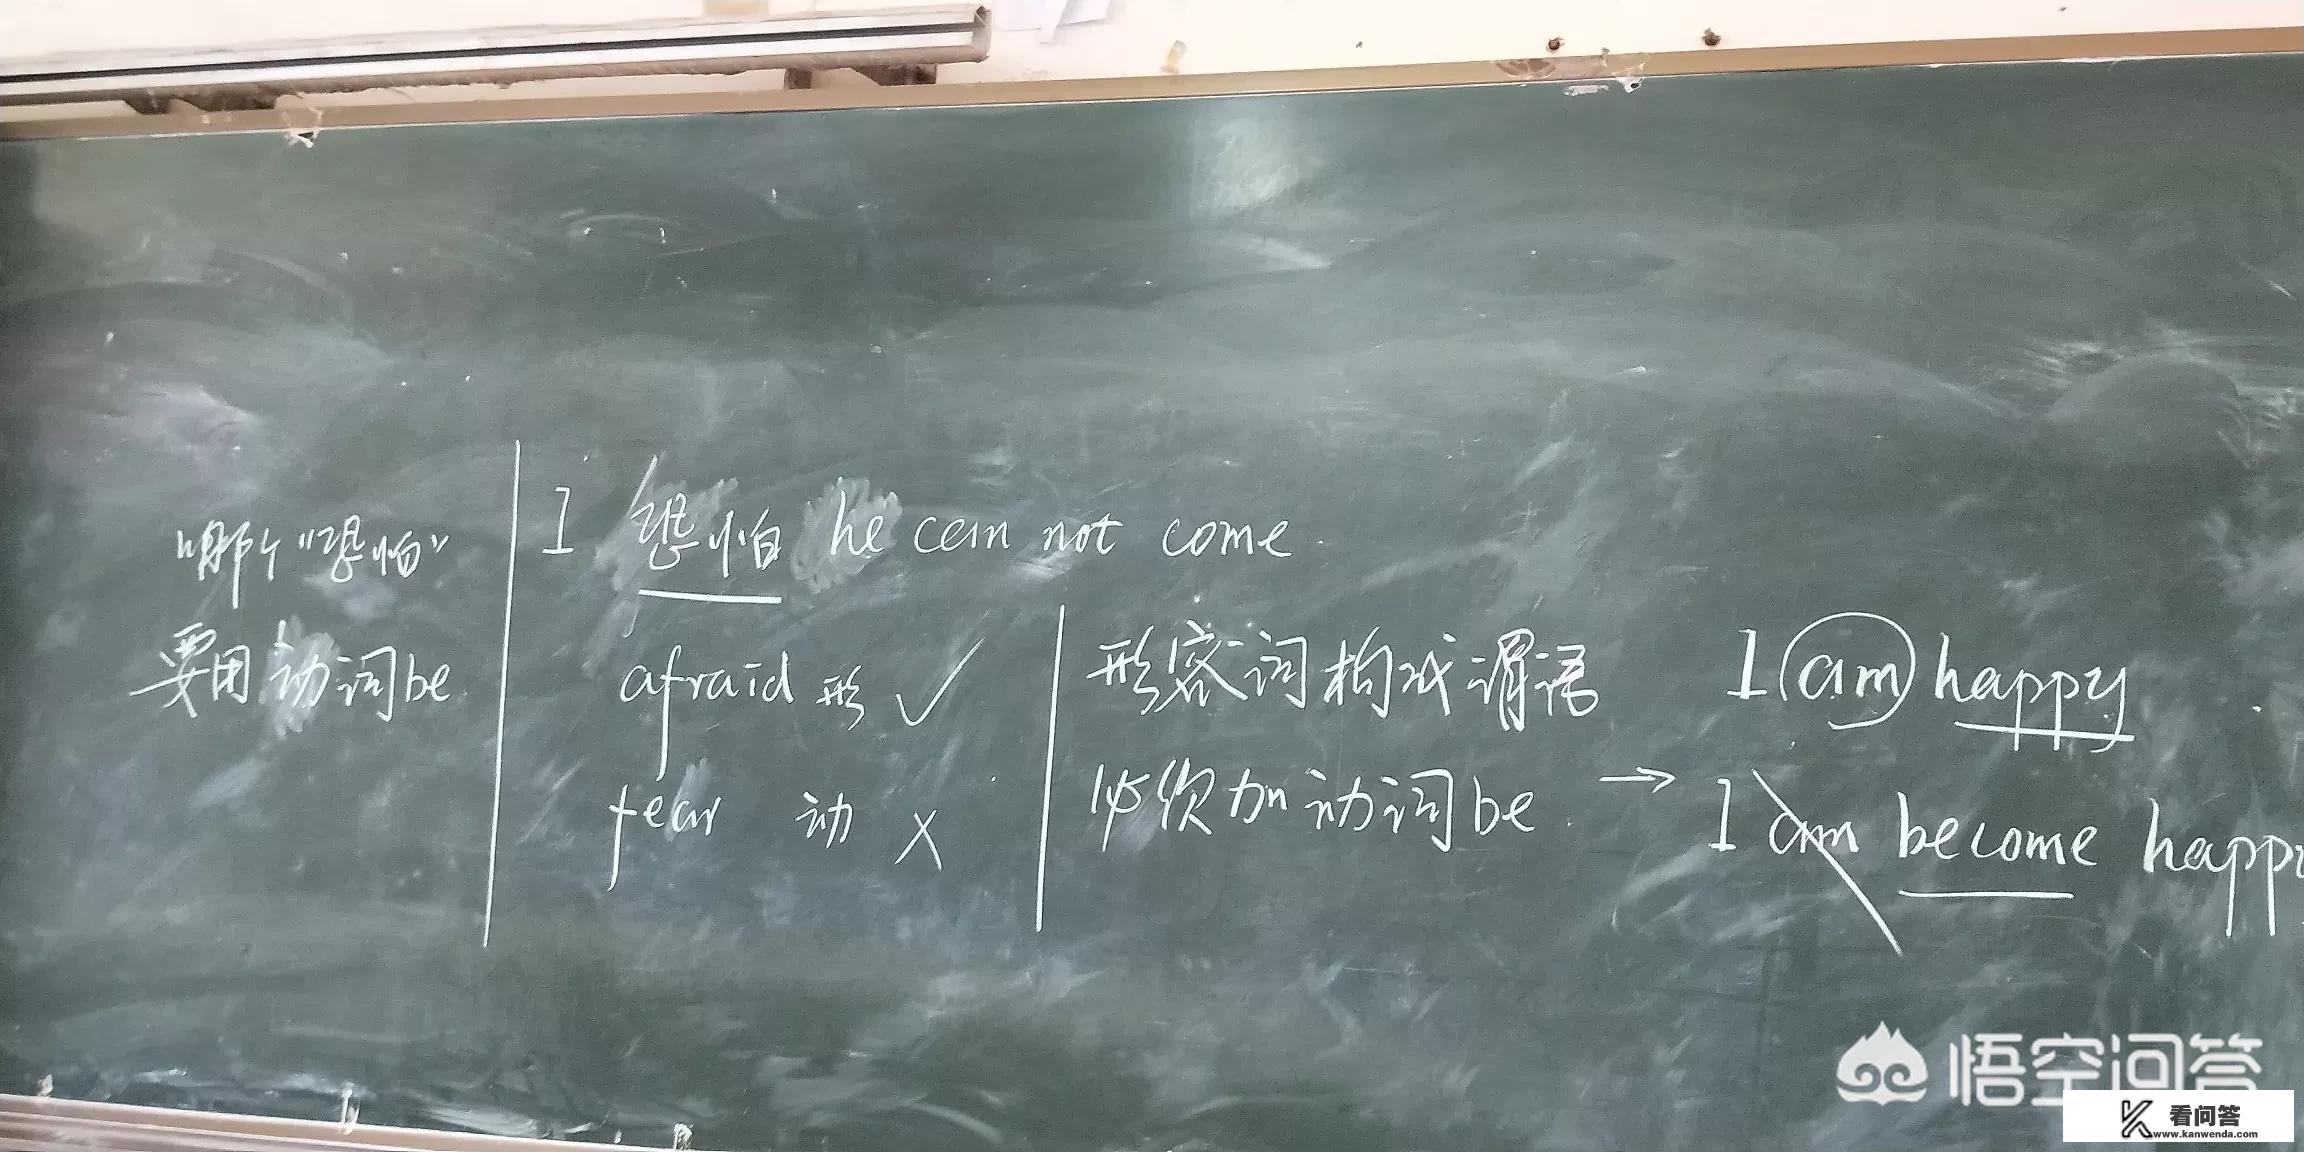 哪个“恐怕”
要用动词be
I 恐怕 he can not come.
afraid 形 ✓
fear 动 ×
形容词构成谓语
必须加动词be. →
I am happy
I am become happy
悟空问答
看问答
www.kanwenda.com